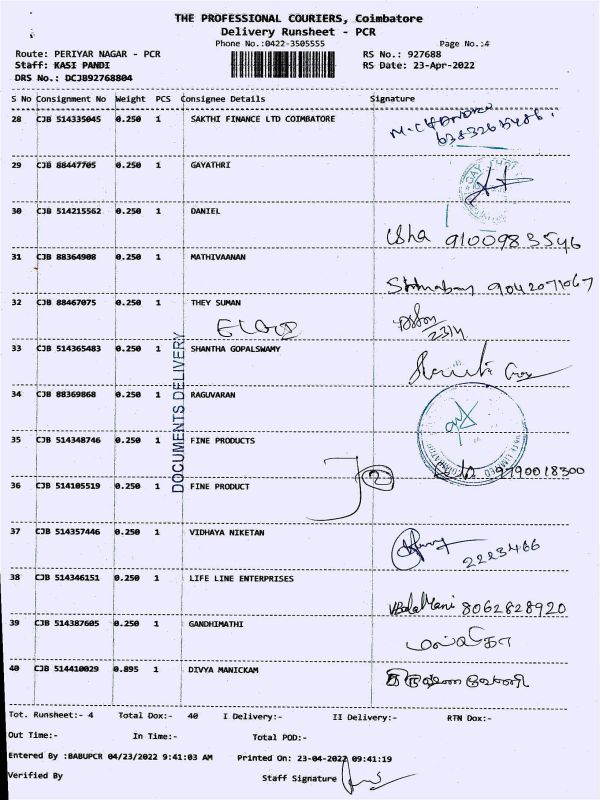 THE PROFESSIONAL COURIERS, Coimbatore
Delivery Runsheet - PCR
Phone No.:0422-3505555 Page No.:4
Route: PERIYAR NAGAR - PCR RS No.: 927688
Staff: KASI PANDI RS Date: 23-Apr-2022
DRS No.: DCJB92768804
S No Consignment No Weight PCS Consignee Details Signature
28 CJB 514335045 0.250 1 SAKTHI FINANCE LTD COIMBATORE
29 CJB 88447705 0.250 1 GAYATHRI
30 CJB 514215562 0.250 1 DANIEL
Usha 9100983546
31 CJB 88364908 0.250 1 MATHIVAANAN
9042071067
32 CJB 88467075 0.250 1 THEY SUMAN
23/4
33 CJB 514365483 0.250 1 SHANTHA GOPALSWAMY
34 CJB 88369868 0.250 1 RAGUVARAN
DOCUMENTS DELIVERY
35 CJB 514348746 0.250 1 FINE PRODUCTS
9790018300
36 CJB 514105519 0.250 1 FINE PRODUCT
37 CJB 514357446 0.250 1 VIDHAYA NIKETAN
2223466
38 CJB 514346151 0.250 1 LIFE LINE ENTERPRISES
BalaMani 8062828920
39 CJB 514387605 0.250 1 GANDHIMATHI
40 CJB 514410029 0.895 1 DIVYA MANICKAM
Tot. Runsheet:- 4 Total Dox:- 40 I Delivery:- II Delivery:- RTN Dox:-
Out Time:- In Time:- Total POD:-
Entered By :BABUPCR 04/23/2022 9:41:03 AM Printed On: 23-04-2022 09:41:19
Verified By Staff Signature